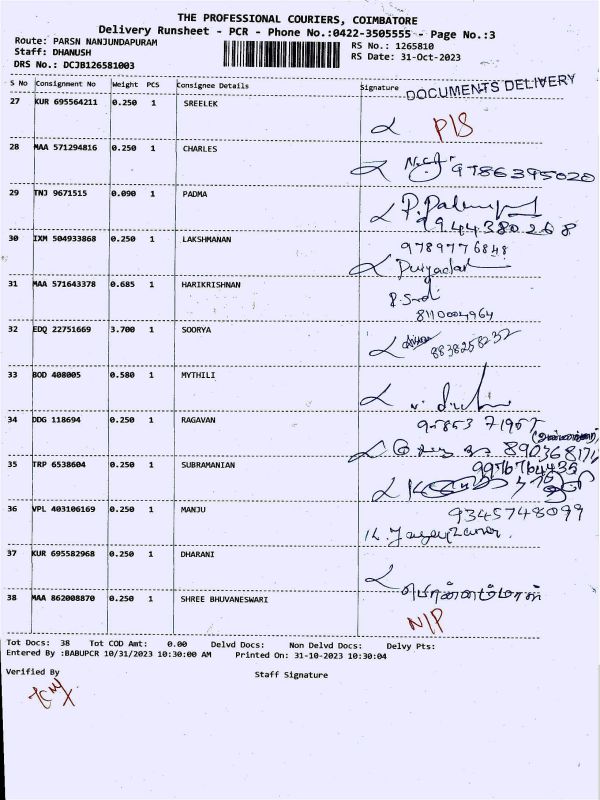 THE PROFESSIONAL COURIERS, COIMBATORE
Delivery Runsheet - PCR - Phone No.:0422-3505555 - Page No.:3
Route: PARSN NANJUNDAPURAM RS No.: 1265810
Staff: DHANUSH RS Date: 31-Oct-2023
DRS No.: DCJB126581003
S No Consignment No Weight PCS Consignee Details Signature DOCUMENTS DELIVERY
27 KUR 695564211 0.250 1 SREELEK
P/S
28 MAA 571294816 0.250 1 CHARLES
9786395020
29 TNJ 9671515 0.090 1 PADMA
9944380268
30 IXM 504933868 0.250 1 LAKSHMANAN
9789776848
31 MAA 571643378 0.685 1 HARIKRISHNAN
8110004964
32 EDQ 22751669 3.700 1 SOORYA
8838258232
33 BOD 408005 0.580 1 MYTHILI
34 DDG 118694 0.250 1 RAGAVAN
35 TRP 6538604 0.250 1 SUBRAMANIAN
36 VPL 403106169 0.250 1 MANJU
9345748099
37 KUR 695582968 0.250 1 DHARANI
38 MAA 862008870 0.250 1 SHREE BHUVANESWARI
N/P
Tot Docs: 38 Tot COD Amt: 0.00 Delvd Docs: Non Delvd Docs: Delvy Pts:
Entered By :BABUPCR 10/31/2023 10:30:00 AM Printed On: 31-10-2023 10:30:04
Verified By Staff Signature